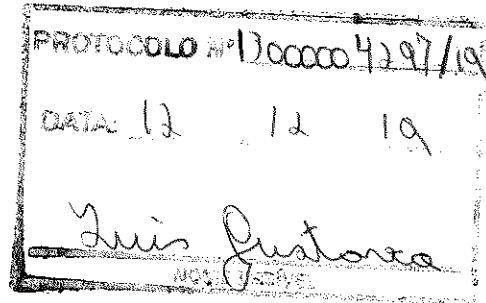 PROTOCOLO Nº 1300000 4297/19
DATA: 12 12 19
Luis Gustavo